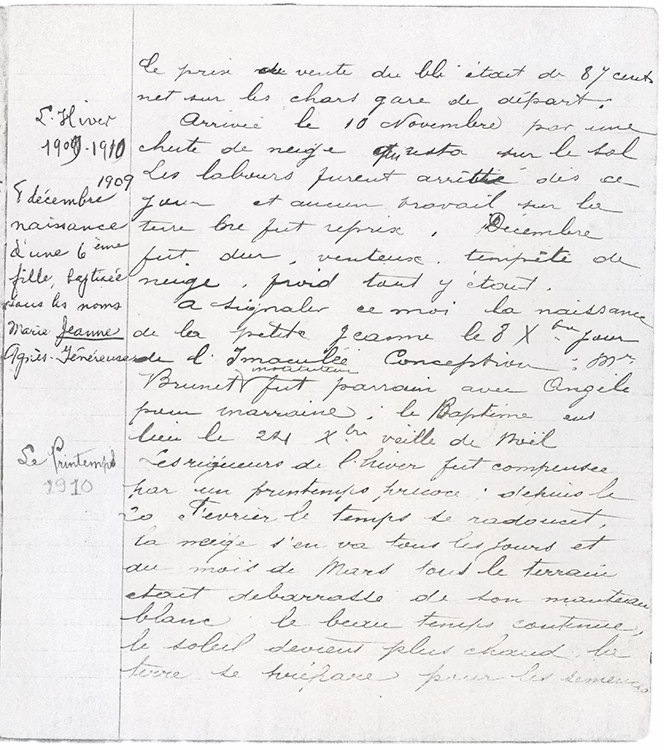 Le prix de vente du blé était de 87 cents
net sur les chars gare de départ.
L'Hiver
1909-1910
Arrivée le 10 Novembre par une
chute de neige qui resta sur le sol
Les labours furent arrêtés dès ce
jour et aucun travail sur la
terre ne fut repris. Décembre
fut dur, venteux, tempête de
neige, froid tout y etait.
8 décembre 1909
naissance
d'une 6ème
fille, baptisée
sous les noms
Marie Jeanne
Agnès-Généreuse
A signaler ce moi la naissance
de la petite Jeanne le 8 Xbre jour
de l'Imaculée Conception : Mr
Brunet instituteur fut parrain avec Angèle
pour marraine; le Baptême eut
lieu le 24 Xbre veille de Noël
Le Printemps
1910
Les rigueurs de l'hiver fut compensée
par un printemps précoce : depuis le
20 Fevrier le temps se radoucit,
la neige s'en va tous les jours et
au mois de Mars tous le terrain
etait debarrassé de son manteau
blanc : le beau temps continue,
le soleil devient plus chaud la
terre se prépare pour les semences